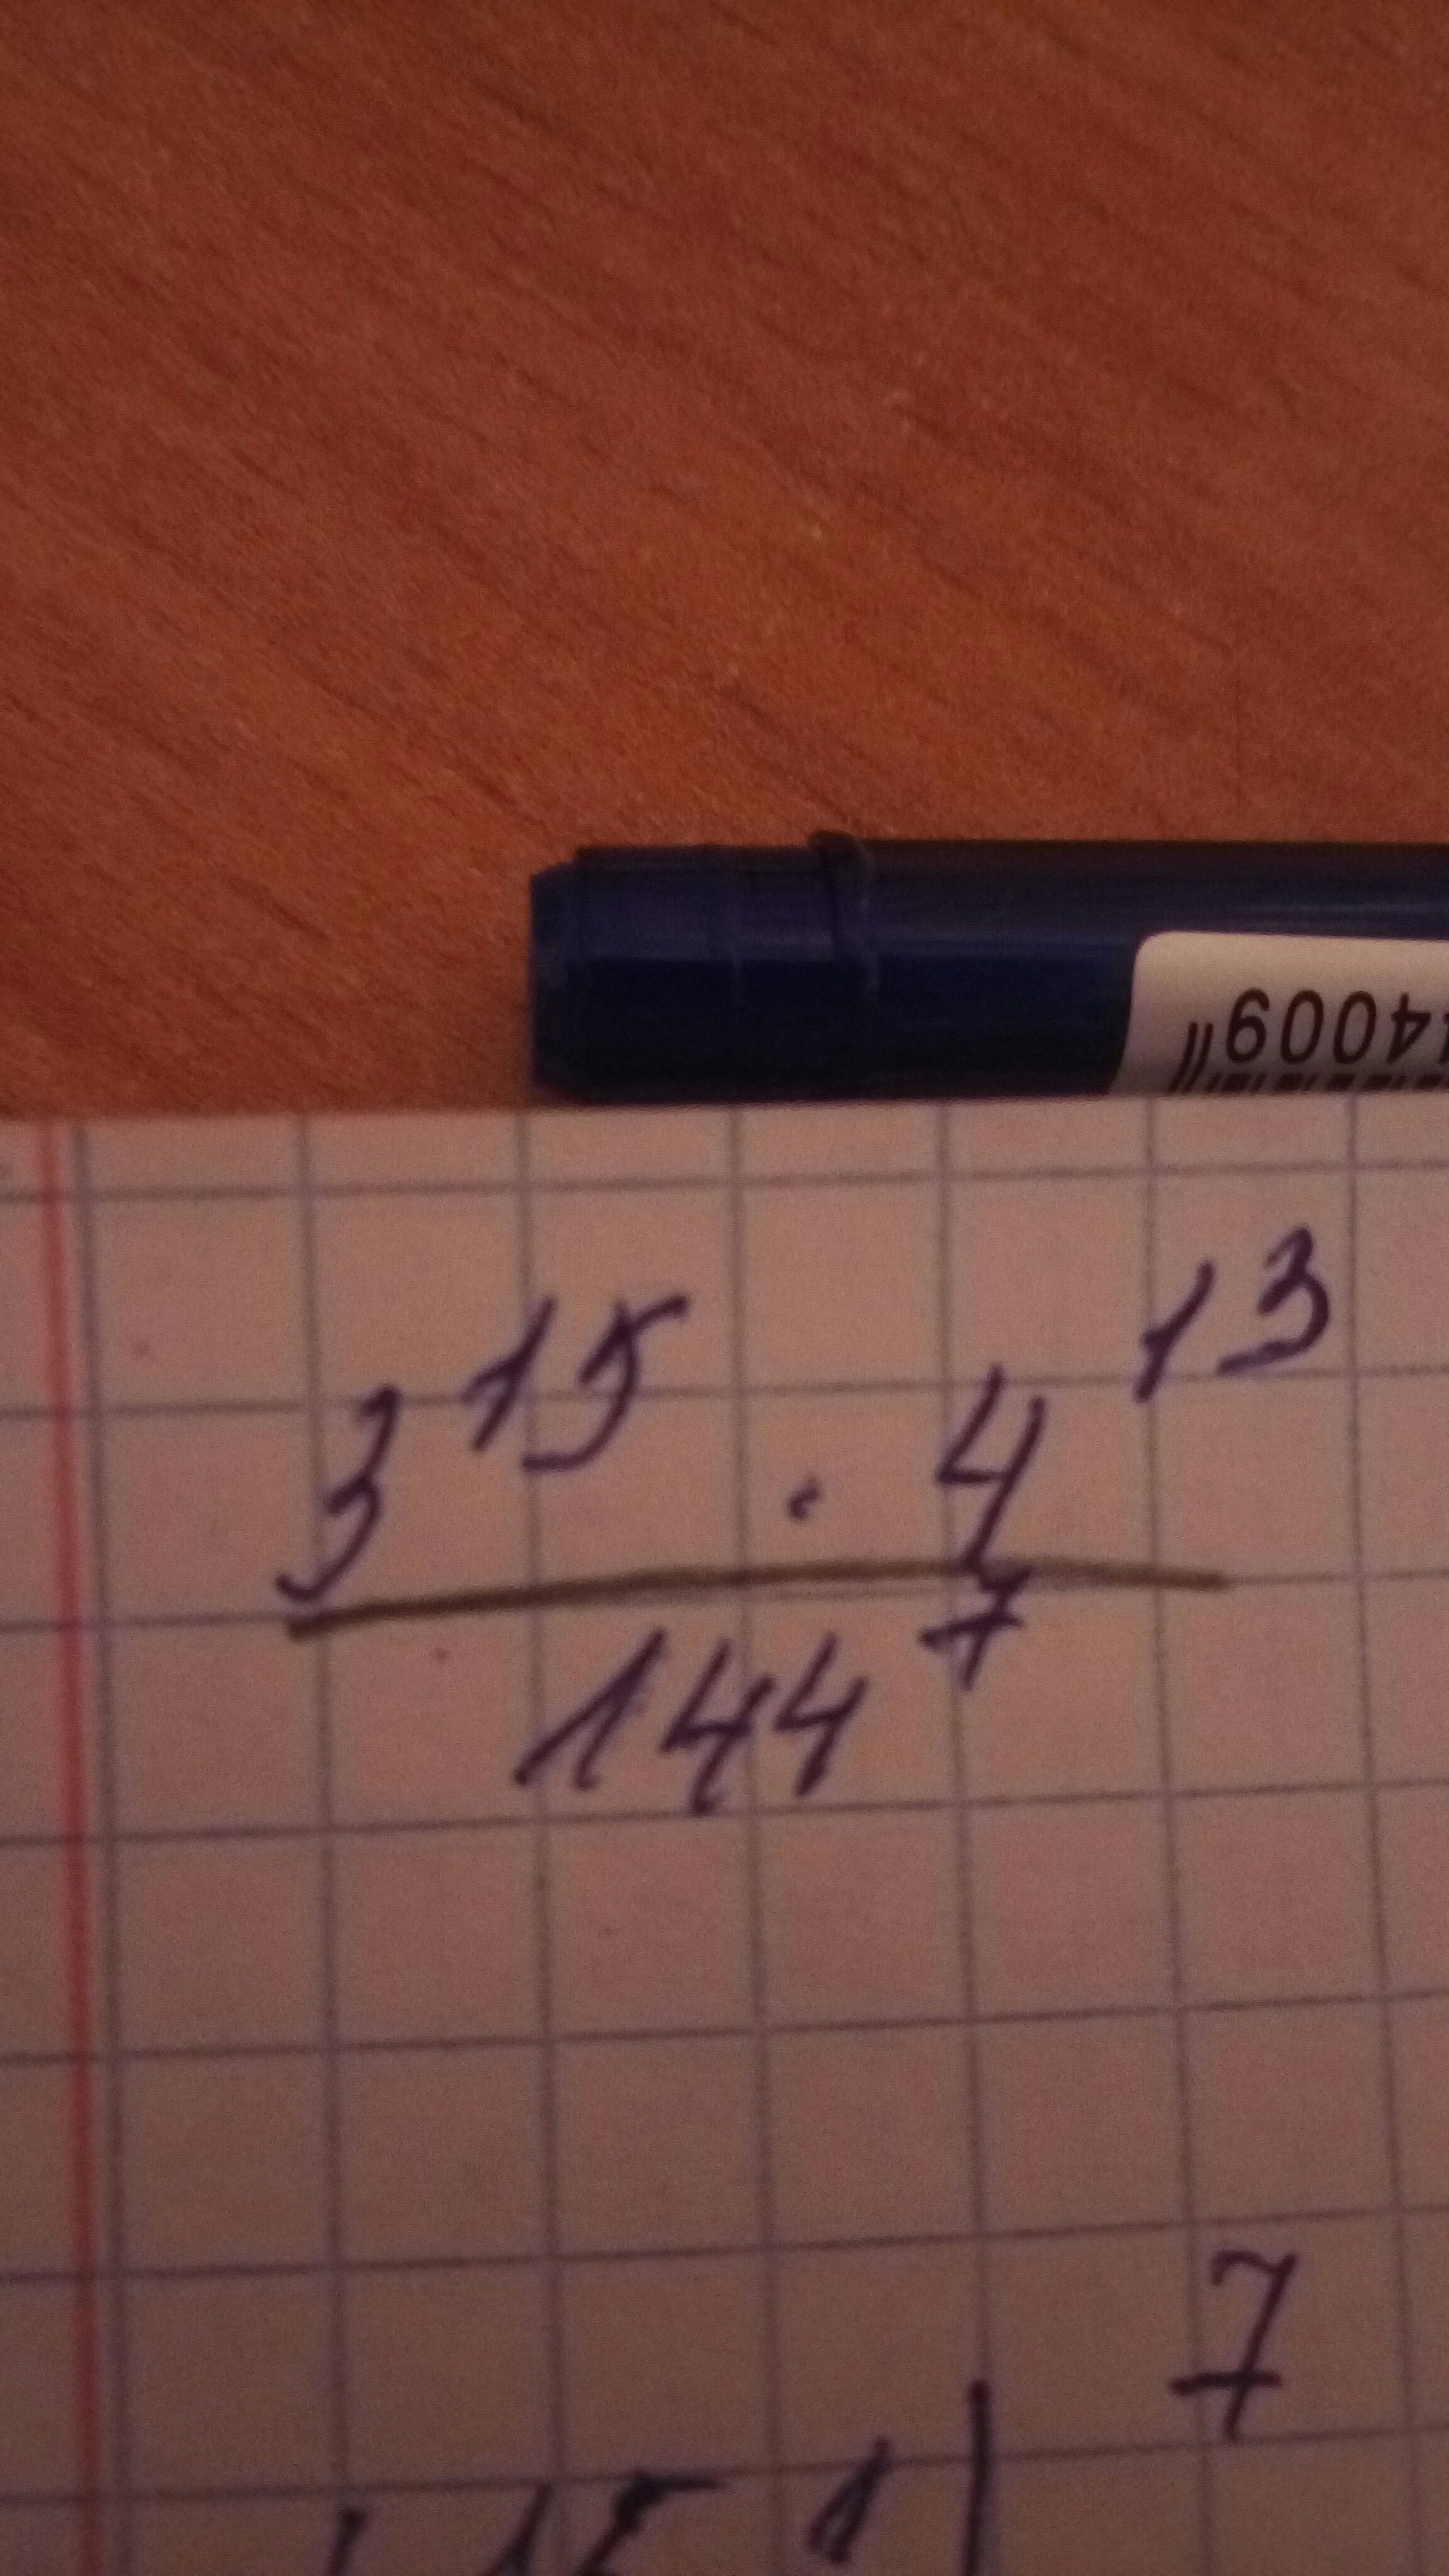 44009
3¹⁵ · 4¹³
144⁷
7